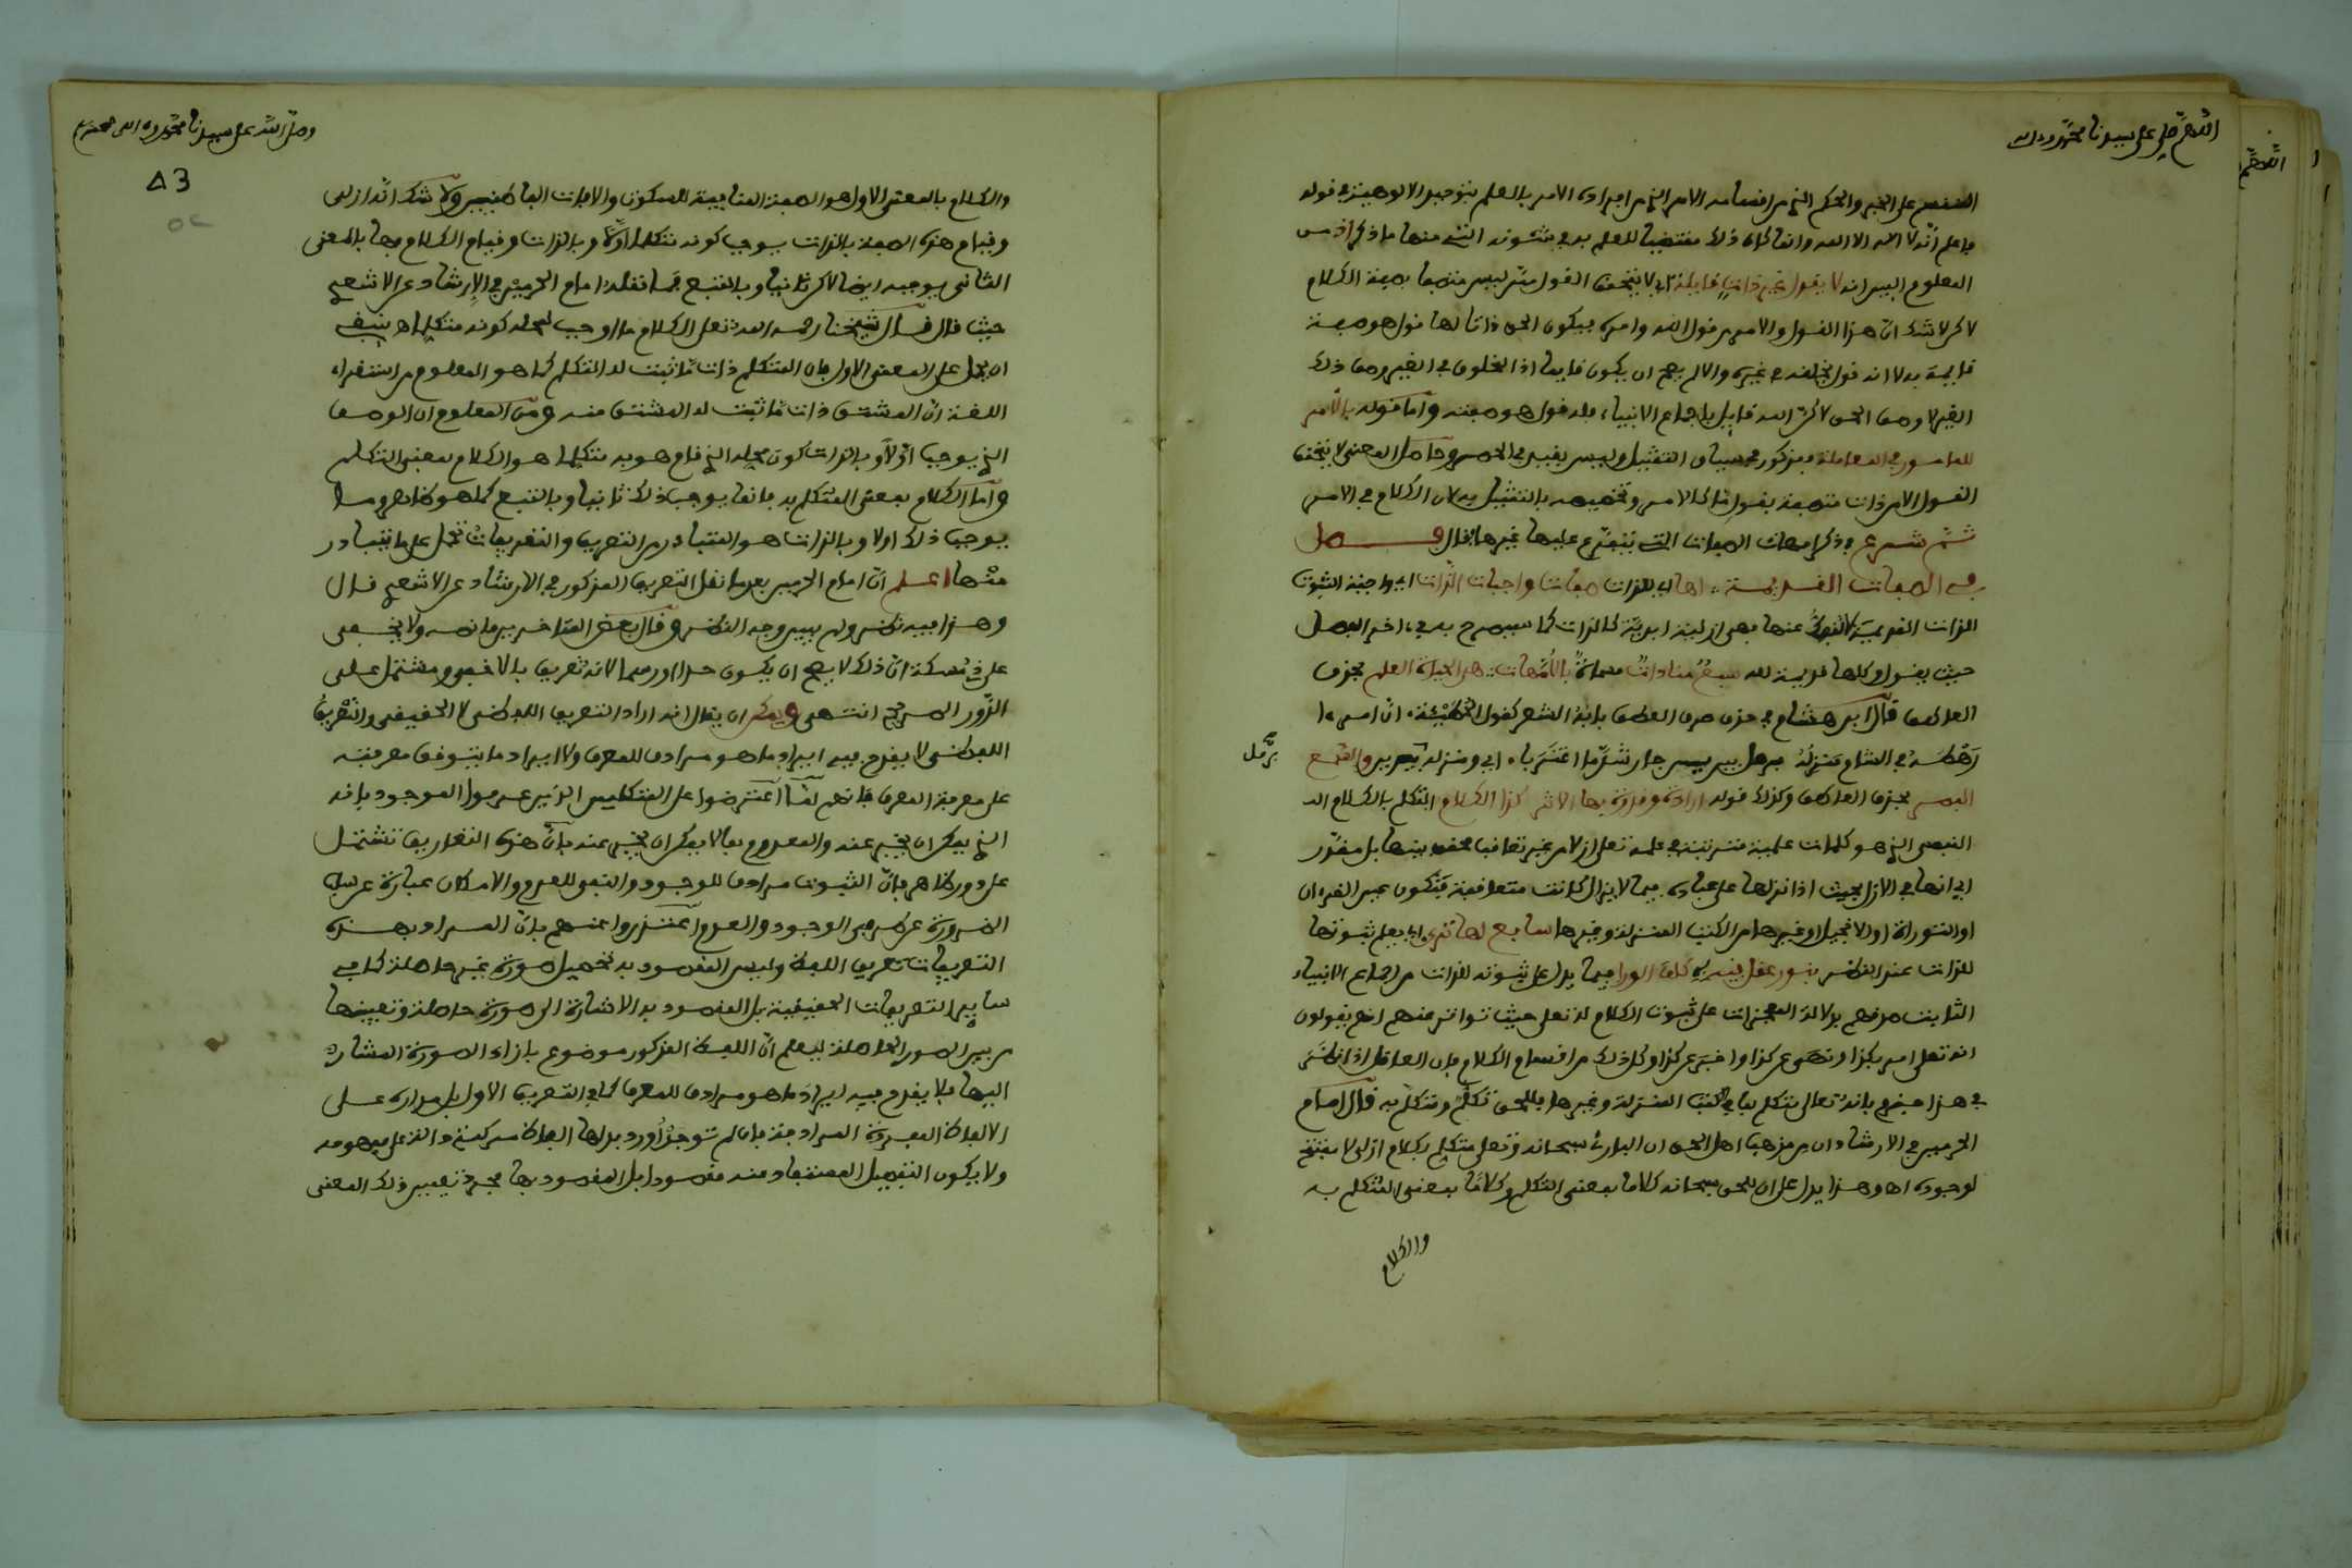 اللهم صل على سيدنا محمد وءاله
المنقسم على الخبر والحكم الذي من اقسامه الامر الذي من افراده الامر بالعلم بتوحيد الالوهية في قوله
فاعلم أنه لا اله الا الله وانما كان ذلك مقتضيا للعلم به في شئونه التي منها ما ذكر اذ من
المعلوم البين انه لا يقول غير ذات قايلة اي لا يتحقق القول ممن ليس متصفا بصفة الكلام
لاكن لاشك ان هذا القول والامر من قول الله وامره فيكون الحق ذاتا لها قول هو صفة
قايمة به لا انه قول يخلقه في غيره والا لم يصح ان يكون قايما اذ المخلوق في الغير وصف ذلك
الغير لا وصف الحق لاكن الله قايل باجماع الانبياء فله قول هو صفته وأما قوله بالأمر
للمامور في المعاملة فمذكور في سياق التمثيل وليس بقيد في الحصر وحاصل المعنى لا يتحقق
القول الا من ذات متصفة بقول ما كالامر وتخصيصه بالتمثيل به لان الكلام في الامر
ثم شرع في ذكر امهات الصفات التي يتفرع عليها غيرها فقال فصل
في الصفات القديمة لها اي للذات صفات واجبات الذات اي واجبة الثبوت
للذات القديمة لا تنفك عنها فهي ازلية ابدية كالذات كما سيصرح به في ءاخر الفصل
حيث يقول وكلها قديمة لله سبع مناداة مسماة بالأمهات هي الحياة العلم بحذف
العاطف قال ابن هشام في حذف حرف العطف بابه الشعر كقول الحطيئة ان امرءا
رهطه في الشام منزله برمل يبرين جار شد ما اغتربا اي ومنزله برمل يبرين والسمع
برمل
البصر بحذف العاطف وكذلك قوله ارادة وقدرة بها الاثر كذا الكلام اي التكلم بالكلام الـ
النفسي الذي هو كلمات علمية مترتبة في علمه تعلى ازلا من غير تعاقب محقق بينها بل مقدر
اي انها في الازل بحيث اذا انزلها على عباده فيما لا يزال كانت متعاقبة فتكون عين القرءان
او التوراة او الانجيل او غيرها من الكتب المنزلة وغيرها سابع لها ترى اي يعلم ثبوتها
للذات عند النظر بنور عقل فيه كافة الورا فيما يدل على ثبوته للذات من اجماع الانبياء
الثابت صدقهم بدلالة المعجزات على ثبوت الكلام له تعلى حيث تواتر عنهم انهم يقولون
انه تعلى امر بكذا ونهى عن كذا واخبر عن كذا وكل ذلك من اقسام الكلام فان العاقل اذا نظر
في هذا جزم بانه تعالى متكلم بما في الكتب المنزلة وغيرها فللحق تكلم ومتكلم به قال امام
الحرمين في الارشاد ان من مذهب اهل الحق ان البارئ سبحانه وتعلى متكلم بكلام ازلي لا مفتتح
لوجوده اه وهذا يدل على ان للحق سبحانه كلاما بمعنى التكلم وكلاما بمعنى المتكلم به
والكلام
وصلى الله على سيدنا محمد وءاله وصحبه
والكلام بالمعنى الاول هو الصفة المنافية للسكوت والافات الباطنيين ولا شك أنه ازلي
وقيام هذه الصفة بالذات يوجب كونه متكلما اولا وبالذات وقيام الكلام بها بالمعنى
الثاني يوجبه ايضا لاكن ثانيا وبالتبع فما نقله امام الحرمين في الارشاد عن الاشعري
حيث قال قال شيخنا رحمه الله تعلى الكلام ما اوجب لمحله كونه متكلما اه ينبغي
ان يحمل على المعنى الاول فان المتكلم ذات ما ثبت له التكلم كما هو المعلوم من استقراء
اللغة ان المشتق ذات ما ثبت له المشتق منه ومن المعلوم ان الوصف
الذي يوجب اولا وبالذات كون محله الذي قام هو به متكلما هو الكلام بمعنى التكلم
وأما الكلام بمعنى المتكلم به فانما يوجب ذلك ثانيا وبالتبع كما هو ظاهر وما
يوجب ذلك اولا وبالذات هو المتبادر من التعريف والتعريفات تحمل على ما يتبادر
منها اعلم ان امام الحرمين بعد ما نقل التعريف المذكور في الارشاد عن الاشعري قال
وهذا فيه نظر ولم يبين وجه النظر وقال بعض المتاخرين ما نصه ولا يخفى
على ذي مسكة ان ذلك لا يصح ان يكون حدا او رسما لانه تعريف بالاخفى ومشتمل على
الدور المصرح انتهى ويمكن ان يقال انه اراد التعريف اللفظي لا الحقيقي والتعريف
اللفظي لا يقدح فيه ايراد ما هو مرادف للمعرف ولا ايراد ما يتوقف معرفته
على معرفة المعرف فانهم لما اعترضوا على المتكلمين الذين عرفوا الموجود بانه
الذي يمكن ان يخبر عنه والمعدوم بما لا يمكن ان يخبر عنه بأن هذه التعاريف تشتمل
على دور ظاهر بان الثبوت مرادف للوجود والنفي للعدم والامكان عبارة عن سلب
الضرورة عن طرفي الوجود والعدم اعتذروا عنهم بان المراد بهذه
التعريفات تعريف اللفظ وليس المقصود به تحصيل صورة غير حاصلة كما في
ساير التعريفات الحقيقية بل المقصود به الاشارة الى صورة حاصلة وتعيينها
من بين الصور الحاصلة ليعلم ان اللفظ المذكور موضوع بازاء الصورة المشار
اليها فلا يقدح فيه ايراد ما هو مرادف للمعرف كما في التعريف الاول بل مداره على
الالفاظ المفردة المرادفة فان لم توجد أورد بدلها الفاظ مركبة دالة على مفهومه
ولا يكون التفصيل المستفاد منه مقصودا بل المقصود بها مجرد تعيين ذلك المعنى